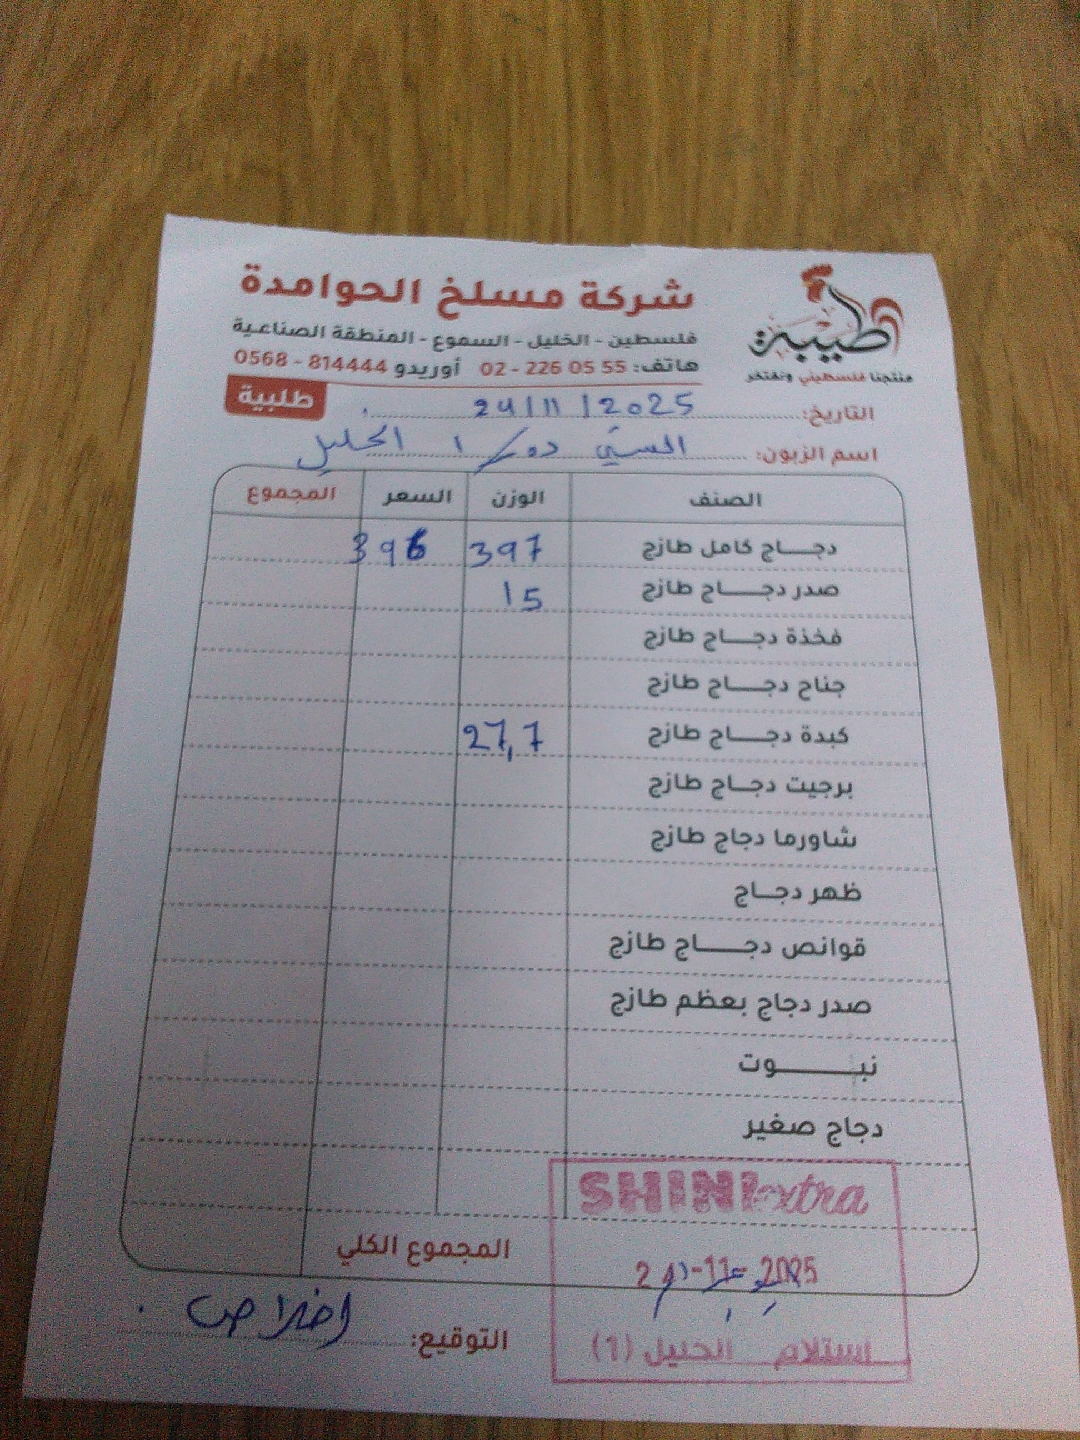 شركة مسلخ الحوامدة
فلسطين - الخليل - السموع - المنطقة الصناعية
هاتف: 02 - 226 05 55 أوريدو 0568 - 814444
طيبة
منتجنا فلسطيني ونفتخر
طلبية
التاريخ: 24/11/2025
اسم الزبون: 1 الخليل
الصنف الوزن السعر المجموع
دجاج كامل طازج 397 396
صدر دجاج طازج 15
فخذة دجاج طازج
جناح دجاج طازج
كبدة دجاج طازج 27,7
برجيت دجاج طازج
شاورما دجاج طازج
ظهر دجاج
قوانص دجاج طازج
صدر دجاج بعظم طازج
نبوت
دجاج صغير
المجموع الكلي
SHINI extra
24-11-2025
استلام الخليل (1)
التوقيع: اخلاص